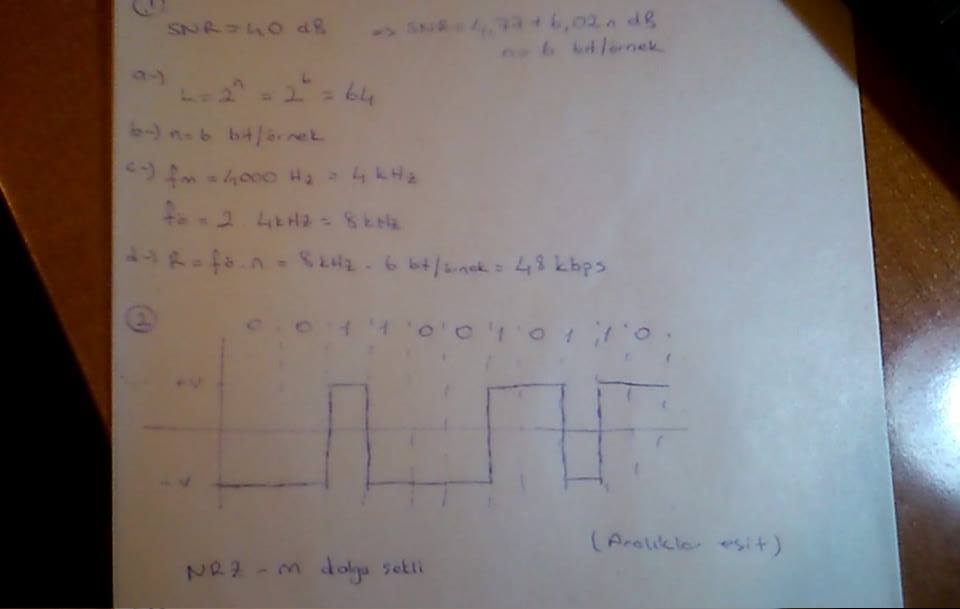 1
SNR = 40 dB ⇒ SNR = 4,77 + 6,02n dB
n = 6 bit/örnek
a-)
L = 2ⁿ = 2⁶ = 64
b-) n = 6 bit/örnek
c-) fm = 4000 Hz = 4 kHz
fö = 2 . 4kHz = 8 kHz
d-) R = fö . n = 8 kHz . 6 bit/örnek = 48 kbps
2
0 0 1 1 0 0 1 0 1 1 0
+V
-V
(Aralıklar eşit)
NRZ - m dalga şekli